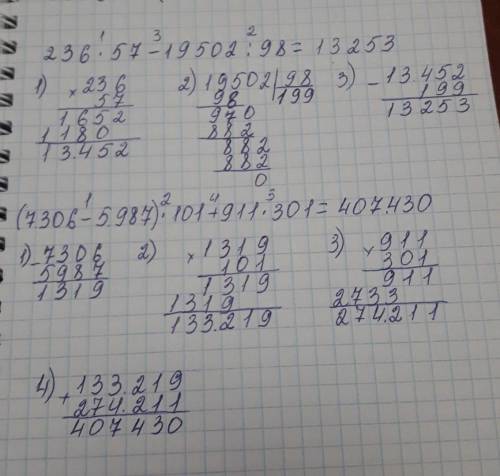 236 · 57 - 19502 : 98 = 13253
1 3 2
1) × 236
57
1652
1180
13.452
2) 19502 | 98
98 199
970
882
882
882
0
3) - 13.452
199
13253
(7306 - 5.987) · 101 + 911 · 301 = 407.430
1 2 4 3
1) - 7306
5987
1319
2) × 1319
101
1319
1319
133.219
3) × 911
301
911
2733
274.211
4) + 133.219
274.211
407430